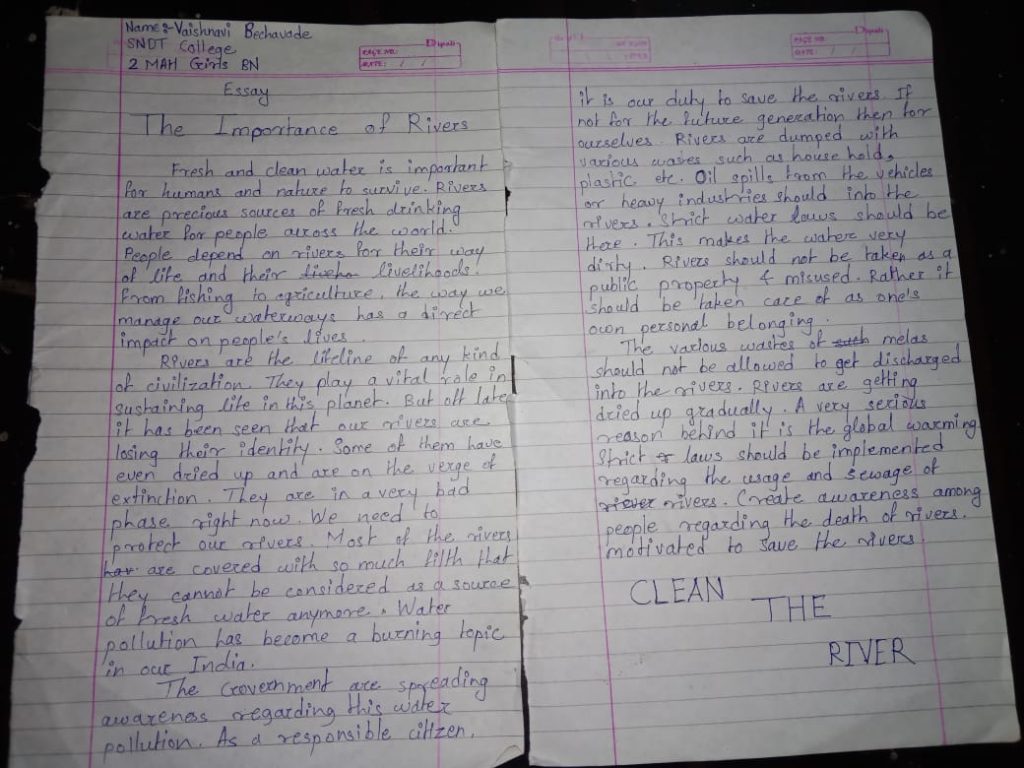 Name:- Vaishnavi Bechavade
SNDT College
2 MAH Girls BN
PAGE NO:
DATE: / /
Essay
The Importance of Rivers
Fresh and clean water is important
for humans and nature to survive. Rivers
are precious sources of fresh drinking
water for people across the world.
People depend on rivers for their way
of life and their livelihoods.
From fishing to agriculture, the way we
manage our waterways has a direct
impact on people's lives.
Rivers are the lifeline of any kind
of civilization. They play a vital role in
sustaining life in this planet. But off late
it has been seen that our rivers are
losing their identity. Some of them have
even dried up and are on the verge of
extinction. They are in a very bad
phase right now. We need to
protect our rivers. Most of the rivers
are covered with so much filth that
they cannot be considered as a source
of fresh water anymore. Water
pollution has become a burning topic
in our India.
The Government are spreading
awareness regarding this water
pollution. As a responsible citizen,
PAGE NO:
DATE: / /
it is our duty to save the rivers. If
not for the future generation then for
ourselves. Rivers are dumped with
various wastes such as house hold,
plastic etc. Oil spills from the vehicles
or heavy industries should into the
rivers. Strict water laws should be
there. This makes the water very
dirty. Rivers should not be taken as a
public property & misused. Rather it
should be taken care of as one's
own personal belonging.
The various wastes of such melas
should not be allowed to get discharged
into the rivers. Rivers are getting
dried up gradually. A very serious
reason behind it is the global warming.
Strict laws should be implemented
regarding the usage and sewage of
rivers. Create awareness among
people regarding the death of rivers.
motivated to save the rivers.
CLEAN
THE
RIVER